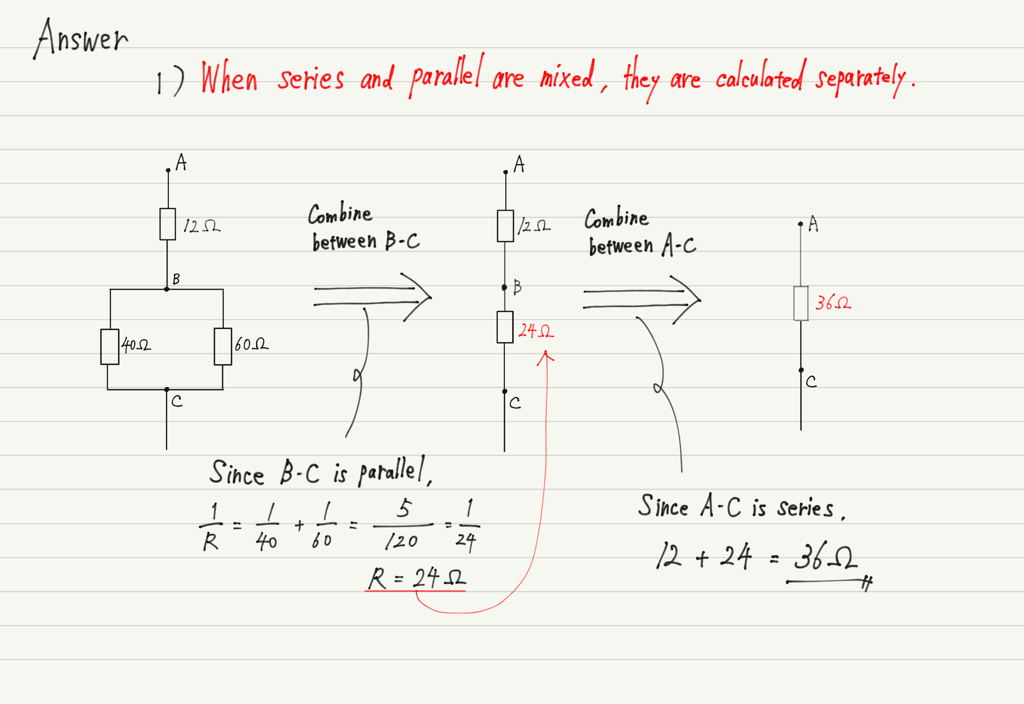 Answer
1) When series and parallel are mixed, they are calculated separately.
A
12Ω
B
40Ω
60Ω
C
Combine
between B-C
A
12Ω
B
24Ω
C
Combine
between A-C
A
36Ω
C
Since B-C is parallel,
1/R = 1/40 + 1/60 = 5/120 = 1/24
R = 24Ω
Since A-C is series.
12 + 24 = 36Ω